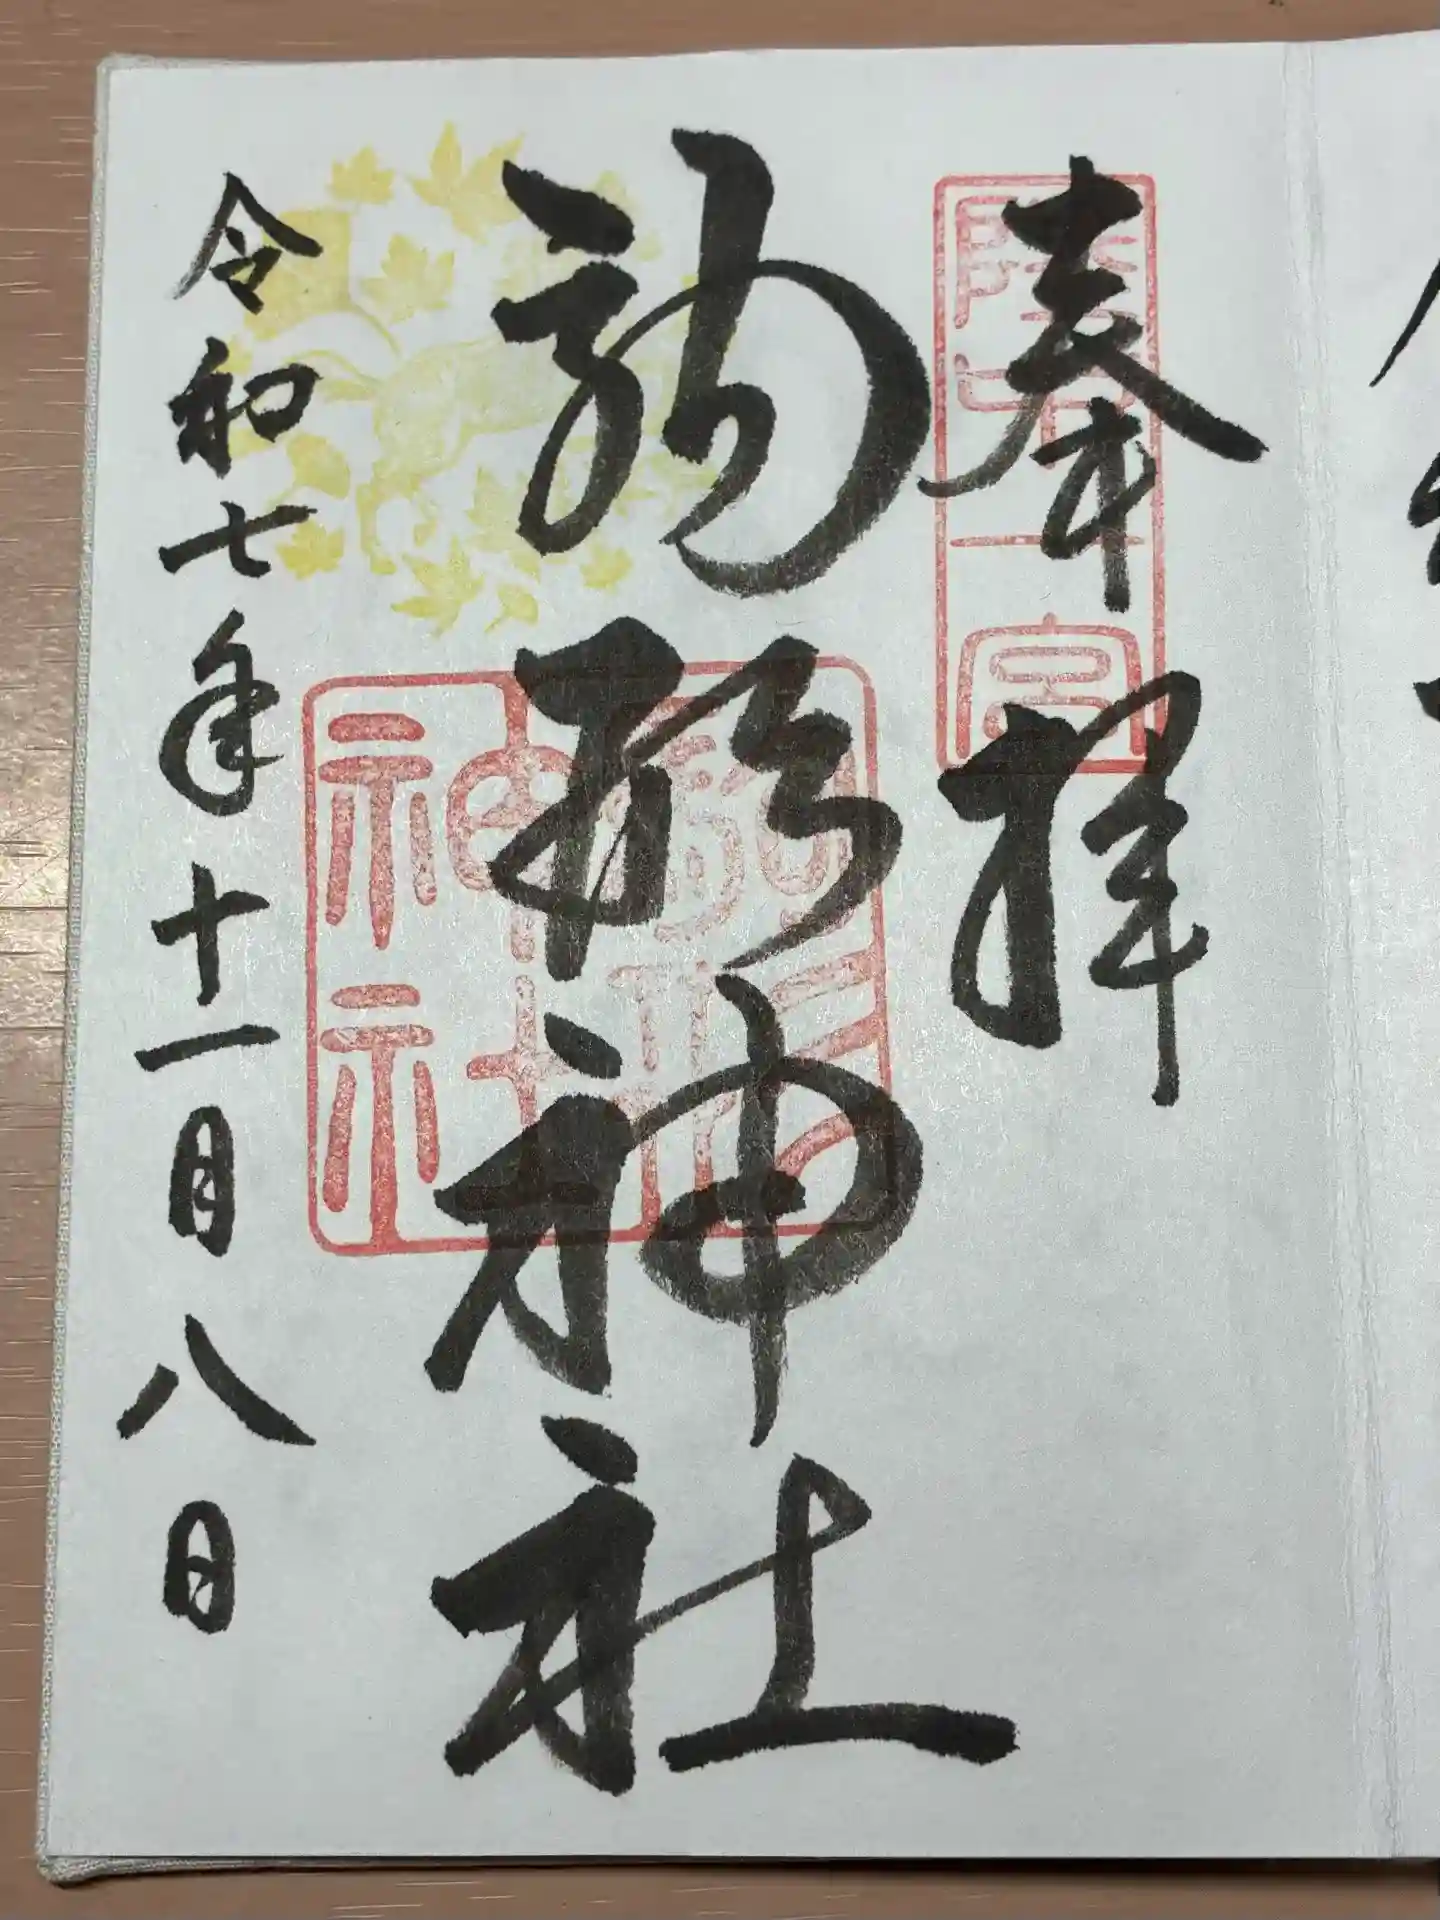 奉拝
陸中一宮
駒形神社
駒形
神社
令和七年十一月八日